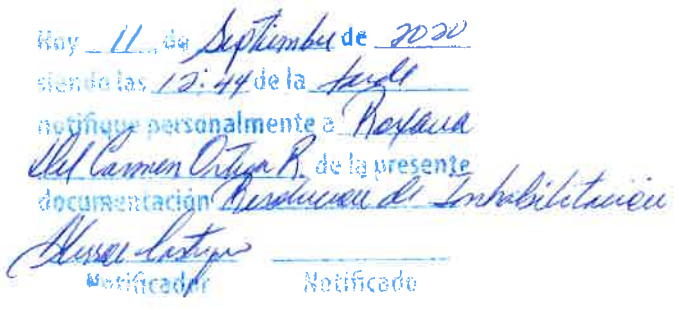 Hoy 11 de Septiembre de 2020
siendo las 12:44 de la tarde
notifique personalmente a Roxana
Del Carmen Ortega R. de la presente
documentación Resolución de Inhabilitación
Castigo
Notificador Notificado